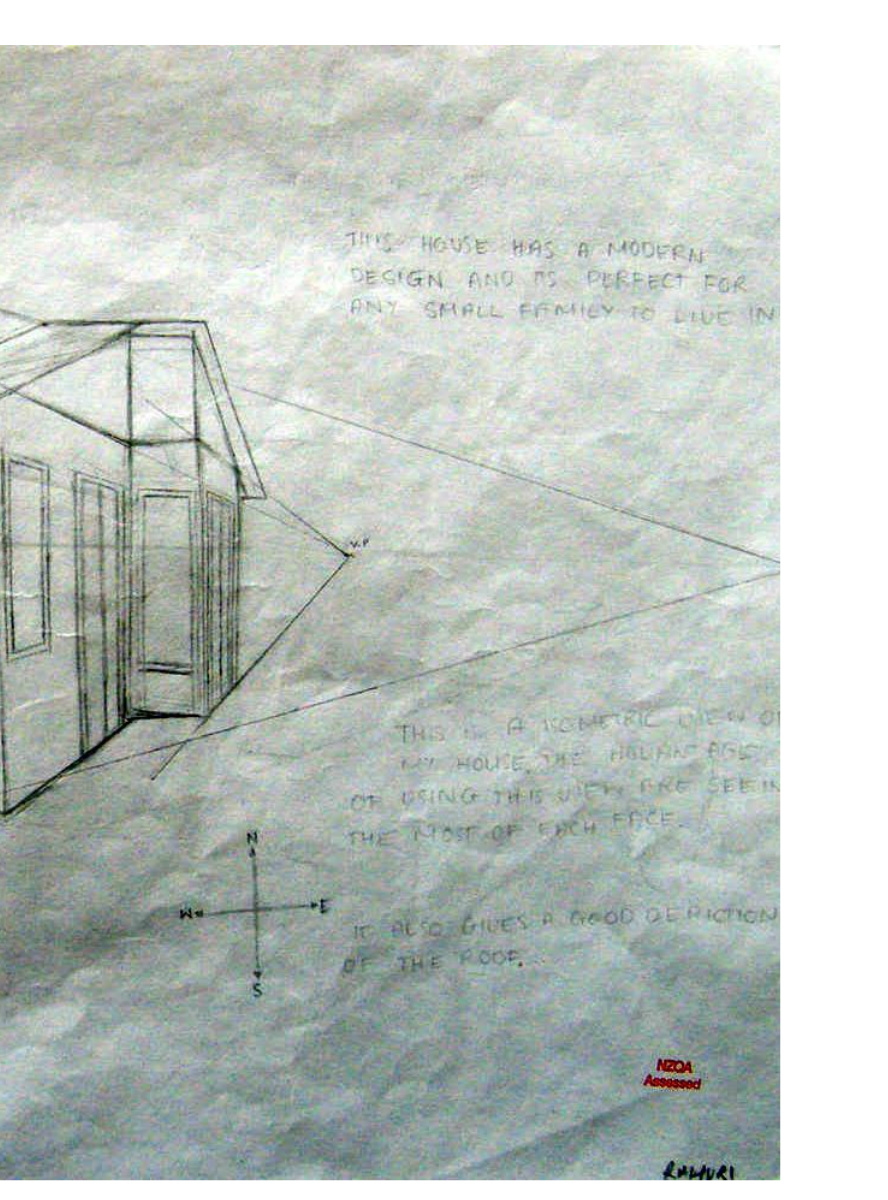 THIS HOUSE HAS A MODERN
DESIGN AND ITS PERFECT FOR
ANY SMALL FAMILY TO LIVE IN
V.P
THIS IS A ISOMETRIC VIEW OF
MY HOUSE. THE
OF USING THIS VIEW ARE SEEIN
THE MOST OF EACH FACE.
N
W E
S
IT ALSO GIVES A GOOD DEPICTION
OF THE ROOF.
NZQA
Assessed